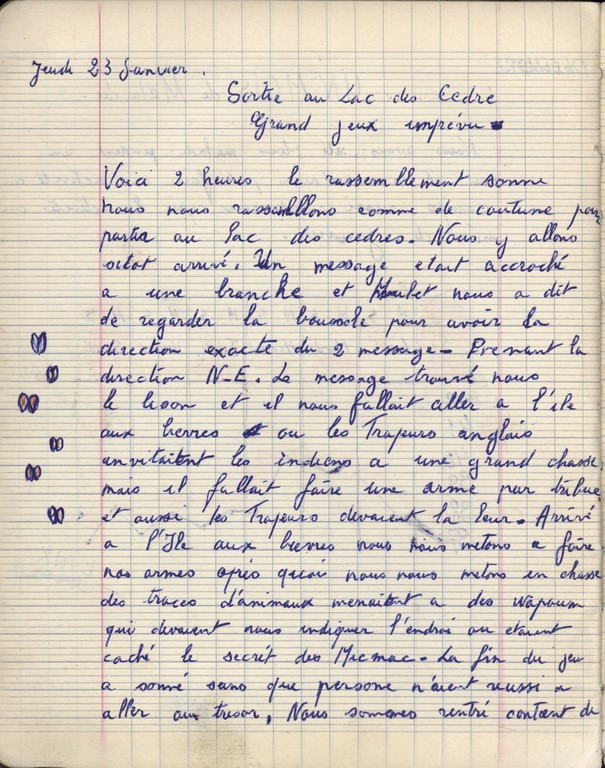 Jeudi 23 Janvier.
Sortie au Lac des Cedre
Grand jeux imprévu
Voici 2 heures le rassemblement sonne
nous nous rassemllons comme de coutume pour
partir au Lac des cedres. Nous y allons
sitot arrivé. Un message etait accroché
a une branche et nous a dit
de regarder la boussole pour avoir la
direction exacte du 2 message - Prenant la
direction N-E. Le message trouvé nous
le lison et il nous fallait aller a l'ile
aux lievres ou les Trapeurs anglais
anvitaitent les indiens a une grand chasse,
mais il fallait faire une arme par tribue
et aussi les Trapeurs devaient la leur. Arrivé
a l'Ile aux lievres nous nous metons a faire
nos armes après quoi nous nous metons en chasse
des traces d'animaux menaitent a des wapoum
qui devaient nous indiquer l'endroi ou etaient
caché le secrét des Micmac. La fin du jeu
a sonné sans que persone n'aient reussi a
aller au tresor, Nous sommes rentré content de